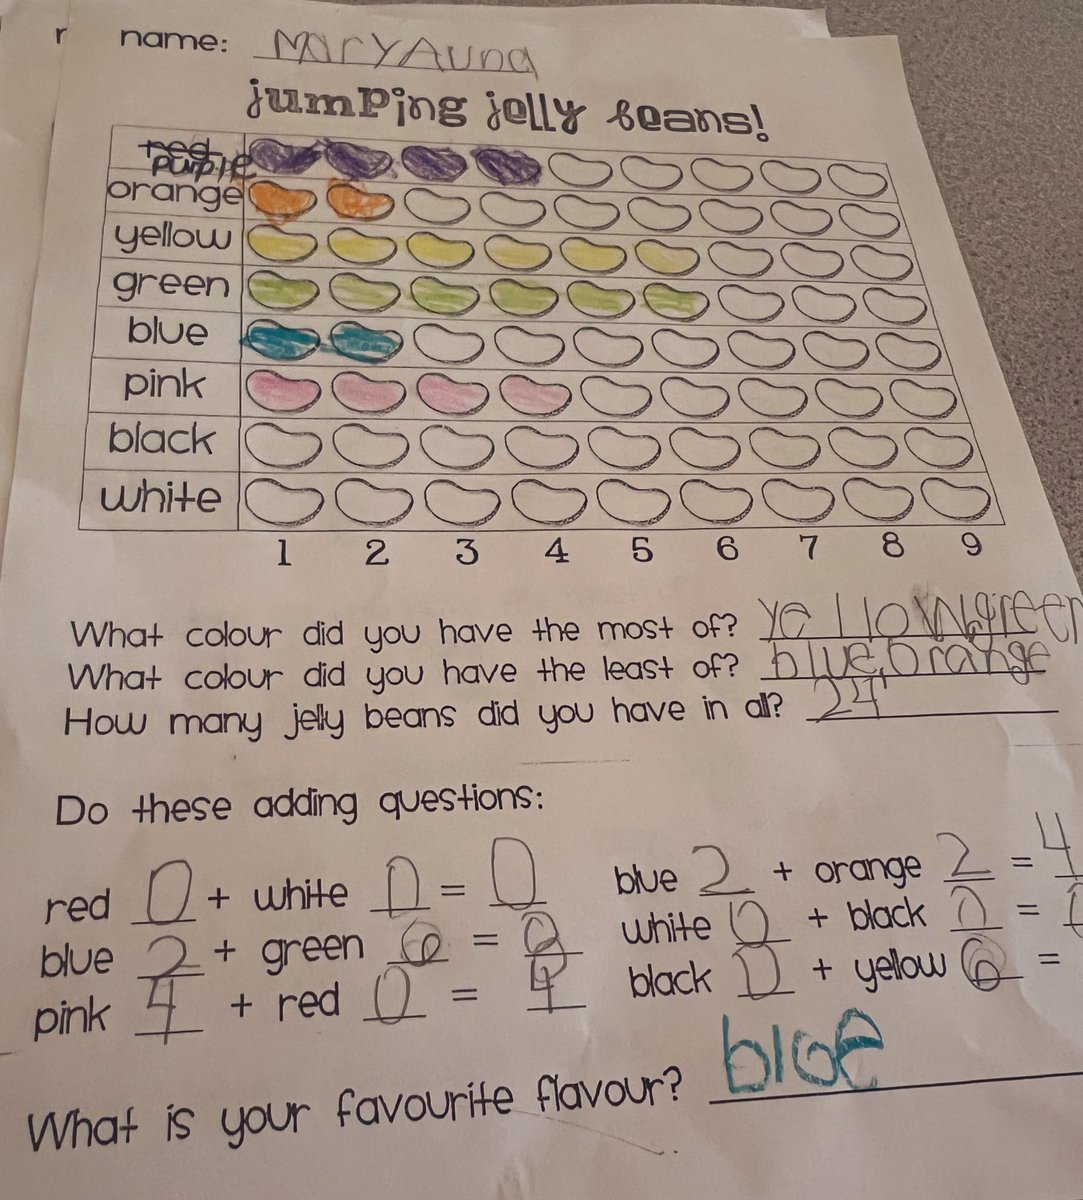 r name: MaryAuna
jumping jelly beans!
red
purple
orange
yellow
green
blue
pink
black
white
1 2 3 4 5 6 7 8 9
What colour did you have the most of? yellow, green
What colour did you have the least of? blue, orange
How many jelly beans did you have in all? 24
Do these adding questions:
red 0 + white 0 = 0 blue 2 + orange 2 = 4
blue 2 + green 6 = 8 white 0 + black 0 = 0
pink 4 + red 0 = 4 black 0 + yellow 6 =
What is your favourite flavour? bloe